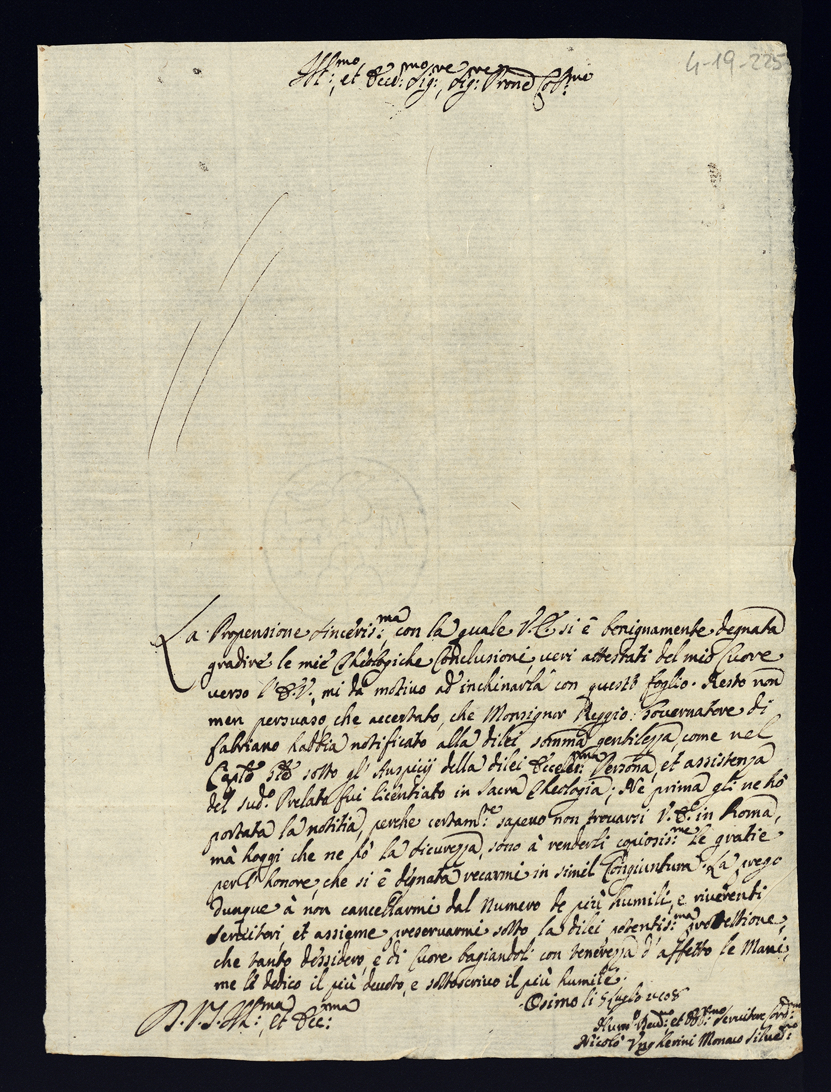 4-19-225
Ill:mo, et Ecc:mo Sig:re, Sig:re Prone Col:mo
La Propensione sinceris:ma con la quale V.E. si è benignamente degnata
gradire le mie Theologiche Conclusioni, veri attestati del mio Cuore
verso l'E.V. mi dà motivo ad inchinarla con questo foglio. Resto non
men persuaso, che accertato, che Monsignor Reggio: Governatore di
Fabriano habbia notificato alla dilei somma gentilezza come nel
sotto gl'Auspicij della dilei Eccel:ma Persona, et assistenza
del sud:o Prelato fui licentiato in Sacra Theologia; Ne prima gli ne hò
portata la notitia, perche certam:te sapevo non trovarsi V.E. in Roma,
mà hoggi che ne hò la sicurezza, sono à renderli copiosis:me le gratie
per l'honore, che si è degnata recarmi in simil Congiuntura. La prego
dunque à non cancellarmi dal Numero de più humili, e riverenti
Servitori, et assieme preservarmi sotto la dilei potentis:ma protettione,
che tanto dessidero, e di Cuore bagiandoli con tenerezza d'affetto le Mani,
me le dedico il più devoto, e sottoscrivo il più humile.
D.V.S. Ill:ma, et Ecc:ma
Osimo li 5 Luglio
Hum:o Dev:mo et Obl:mo Servitore
Nicolò Ungherini Monaco Silve:no